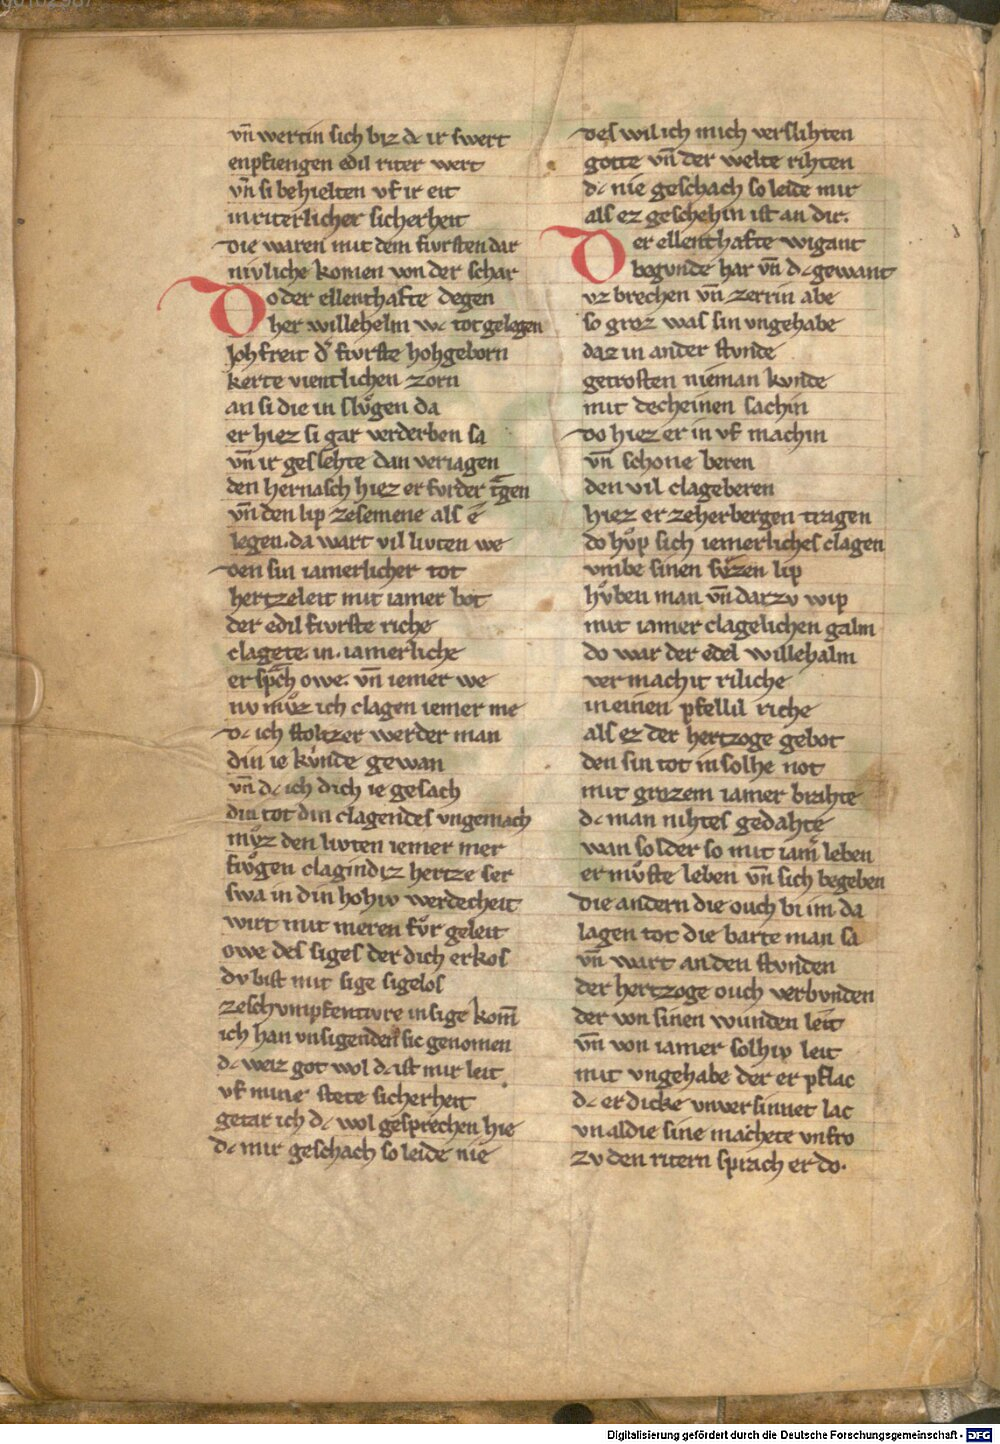 vn̄ wertin sich biz dc ir swert
enpfiengen edil riter wert
vn̄ si behielten vf ir eit
in riterlicher sicherheit
Die waren mit dem fivrsten dar
nivliche komen von der schar
Do der ellenthafte degen
her willehelm wc tot gelegen
Johfreit d͛ fivrste hohgeborn
kerte vientlichen zorn
an si die in slvͦgen da
er hiez si gar verderben sa
vn̄ ir geslehte dan veriagen
den hernasch hiez er fvrder tᵃgen
vn̄ den lip zesemene als e
legen. da wart vil livten we
Den sin iamerlicher tot
hertzeleit mit iamer bot
der edil fivrste riche
clagete. in. iamerliche
er spᵃch owe. vn̄ iemer we
nv mvͦz ich clagen iemer me
Dc ich stoltzer werder man
din ie kvnde gewan
vn̄ dc ich dich ie gesach
din tot din clagendes vngemach
mvͦz den livten iemer mer
fvͦgen clagindiz hertze ser
swa in din hohiv werdecheit
wirt mit meren fvͤr geleit
owe des siges der dich erkos
dv bist mit sige sigelos
zeschvmpfentivre in sige kom̄
ich han vnsigenden sic genomen
dc weiz got wol dc ist mir leit
vf mine stete sicherheit
getar ich dc wol gesprechen hie
dc mir geschach so leide nie
Des wil ich mich verslihten
gotte vn̄ der welte rihten
dc nie geschach so leide mir
als ez geschehin ist an dir.
Der ellenthafte wigant
begvnde har vn̄ dc gewant
vz brechen vn̄ zerrin abe
so groz was sin vngehabe
daz in ander stvnde
getrosten nieman kvnde
mit decheinen sachin
Do hiez er in vf machin
vn̄ schone beren
den vil clageberen
hiez er zeherbergen tragen
do hvͦp sich iemerliches clagen
vmbe sinen svͤzen lip
hvͦben man vn̄ darzv wip
mit iamer clagelichen galm
do war der edel willehalm
ver machit riliche
in einen pfellil riche
als ez der hertzoge gebot
den sin tot in solhe not
mit grozem iamer brahte
dc man nihtes gedahte
wan solder so mit iam͛ leben
er mvͦste leben vn̄ sich begeben
Die andern die ouch bi im da
lagen tot die barte man sa
vn̄ wart an den stvnden
der hertzoge ouch verbvnden
der von sinen wunden leit
vn̄ von iamer solhiv leit
mit vngehabe der er pflac
dc er dicke vnversinnet lac
vn aldie sine machete vnfro
zv den ritern sprach er do.
Digitalisierung gefördert durch die Deutsche Forschungsgemeinschaft - DFG